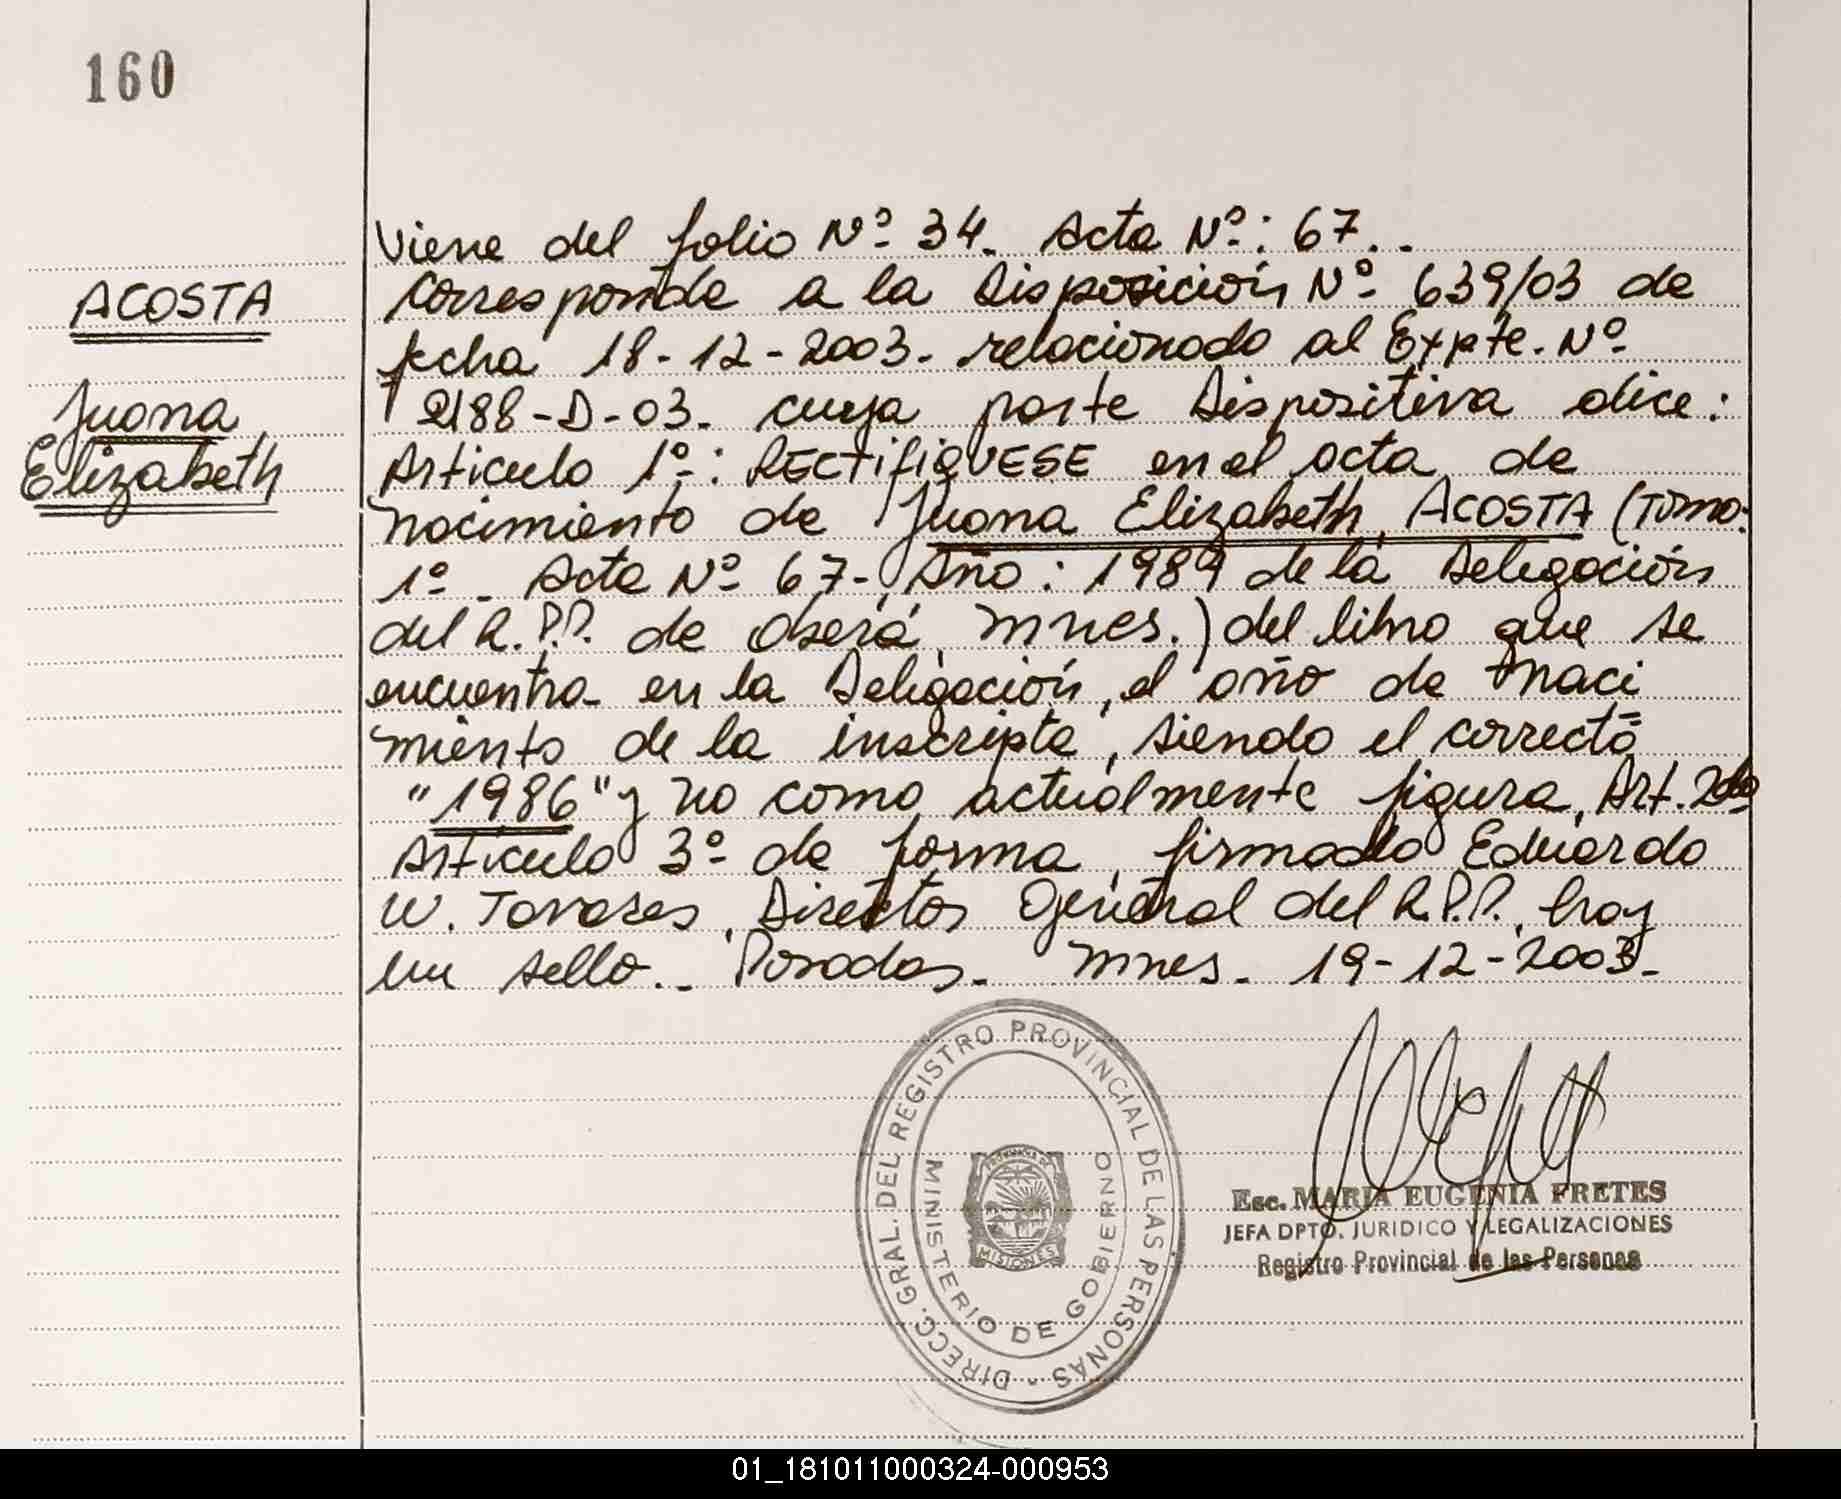 160
ACOSTA
Juana
Elizabeth
Viene del folio Nº 34. Acta Nº: 67..
Corresponde a la Disposición Nº 639/03 de
fecha 18-12-2003. relacionado al Expte. Nº
2188-D-03. cuya parte Dispositiva dice:
Articulo 1º: RECTIFIQUESE en el acta de
nacimiento de Juana Elizabeth ACOSTA (Tomo:
1º - Acta Nº 67-, Año: 1989 de la Delegación
del R.P.P. de Oberá, Mnes.) del libro que se
encuentra en la Delegación, el año de naci
miento de la inscripta, siendo el correcto
"1986" y no como actualmente figura, Art. 2do
Articulo 3º de forma, firmado Eduardo
W. Tavares, Director General del R.P.P., hay
un sello.- Posadas. Mnes. 19-12-2003.-
DIRECC. GRAL. DEL REGISTRO PROVINCIAL DE LAS PERSONAS -
MINISTERIO DE GOBIERNO
PROVINCIA DE
MISIONES
Esc. MARIA EUGENIA FRETES
JEFA DPTO. JURIDICO Y LEGALIZACIONES
Registro Provincial de las Personas
01_181011000324-000953